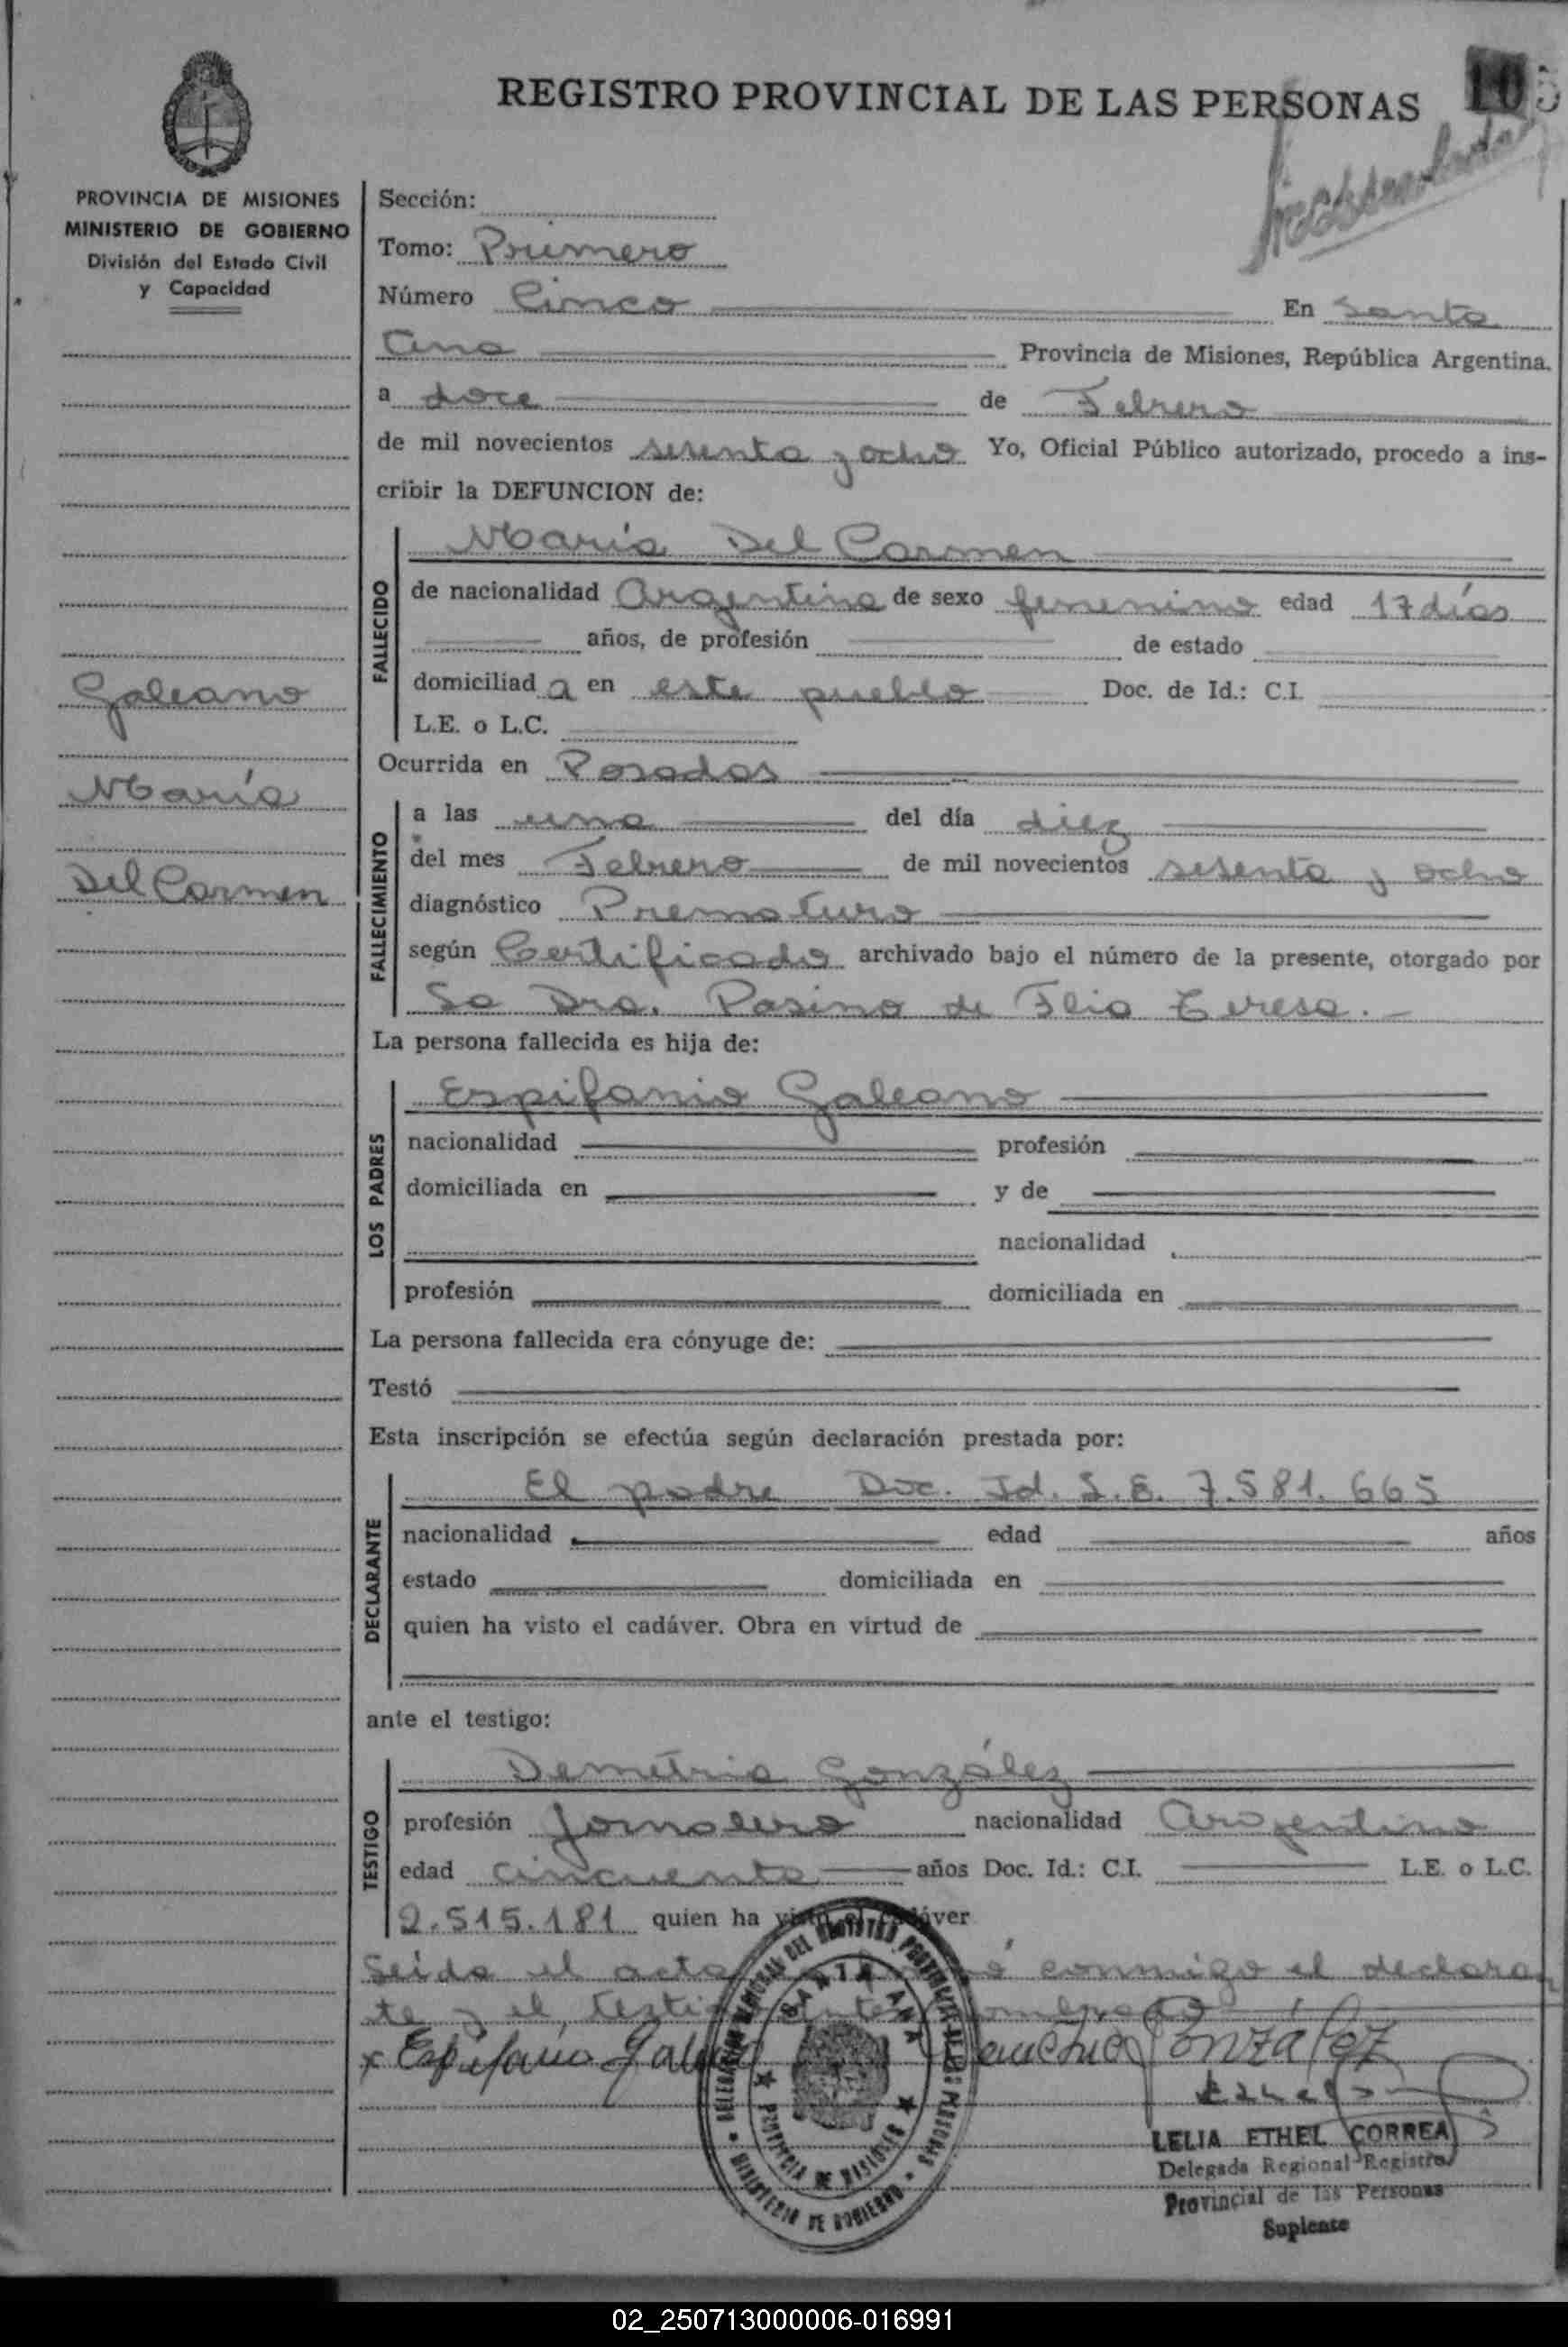 REGISTRO PROVINCIAL DE LAS PERSONAS
105
PROVINCIA DE MISIONES
MINISTERIO DE GOBIERNO
División del Estado Civil
y Capacidad
Galeano
María
Del Carmen
Sección:
Tomo: Primero
Número Cinco En Santa
Ana Provincia de Misiones, República Argentina.
a doce de Febrero
de mil novecientos sesenta y ocho Yo, Oficial Público autorizado, procedo a ins-
cribir la DEFUNCION de:
FALLECIDO
María Del Carmen
de nacionalidad Argentina de sexo femenino edad 17 días
años, de profesión de estado
domiciliad a en este pueblo Doc. de Id.: C.I.
L.E. o L.C.
Ocurrida en Posadas
FALLECIMIENTO
a las una del día diez
del mes Febrero de mil novecientos sesenta y ocho
diagnóstico Prematuro
según Certificado archivado bajo el número de la presente, otorgado por
La Dra. Pasino de Flia Teresa.-
La persona fallecida es hija de:
LOS PADRES
Espifanio Galeano
nacionalidad profesión
domiciliada en y de
nacionalidad
profesión domiciliada en
La persona fallecida era cónyuge de:
Testó
Esta inscripción se efectúa según declaración prestada por:
DECLARANTE
El padre Doc. Id. L.E. 7.581.665
nacionalidad edad años
estado domiciliada en
quien ha visto el cadáver. Obra en virtud de
ante el testigo:
TESTIGO
Demetrio González
profesión Jornalero nacionalidad Argentino
edad cincuenta años Doc. Id.: C.I. L.E. o L.C.
2.515.181 quien ha visto el cadáver
Leida el acta conmigo el declaran
te y el testigo
x Espifanio Galeano Demetrio González
DELEGACION DEL REGISTRO PROVINCIAL DE LAS PERSONAS
SANTA ANA
PROVINCIA DE MISIONES
MINISTERIO DE GOBIERNO
LELIA ETHEL CORREA
Delegada Regional Registro
Provincial de las Personas
Suplente
02_250713000006-016991